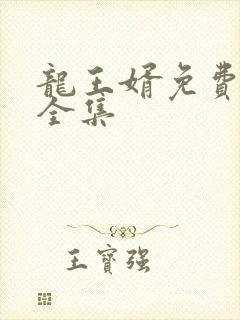 龍王婿免費
全集
王寶强